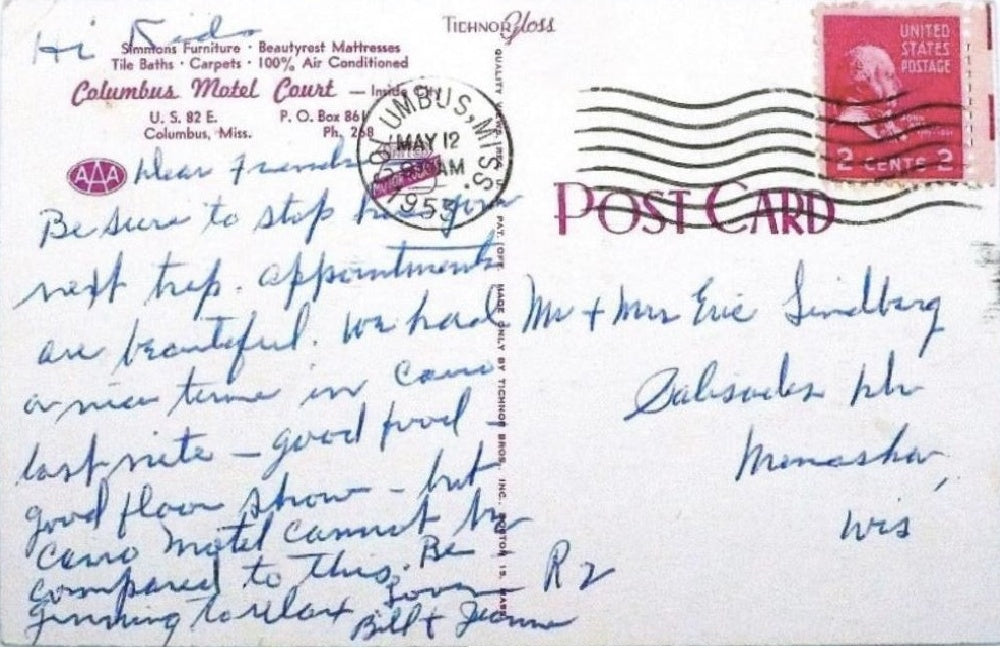 Hi Kids
TICHNOR Gloss
Simmons Furniture · Beautyrest Mattresses
Tile Baths · Carpets · 100% Air Conditioned
Columbus Motel Court — Inside City
U. S. 82 E. P. O. Box 86
Columbus, Miss. Ph. 268
AAA
COLUMBUS, MISS.
MAY 12
AM
1955
UNITED
STATES
POSTAGE
JOHN
2 CENTS 2
POST CARD
Dear Friends
Be sure to stop here your
next trip. appointments
are beautiful. We had
a nice time in Cairo
last nite – good food –
good floor show – but
Cairo Motel cannot be
compared to this. Be
ginning to relax Love
Bill + Jeanne
QUALITY VIEWS PAT. OFF. MADE ONLY BY TICHNOR BROS., INC., BOSTON 15, MASS.
Mr + Mrs Eric Lindberg
Palisades
Menasha,
Wis
R 2